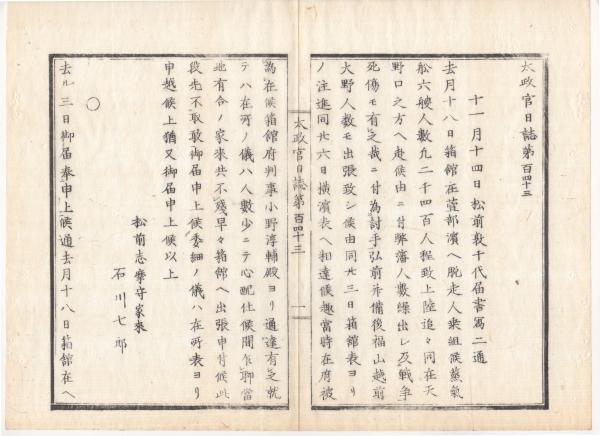 太政官日誌第百四十三
十一月十四日松前敦千代届書寫二通
去月十八日箱館在萱部濱へ脱走人乗組候蒸氣
船六艘人數九二千四百人程致上陸追々同在大
野口之方へ赴候由ニ付弊藩人數繰出し及戦争
死傷モ有之哉ニ付為討手弘前并備後福山越前
大野人數モ出張致シ候由同廿三日箱館表ヨリ
ノ注進同廿六日横濱表へ相達候趣當時在府被
太政官日誌第百四十三 一
為在候箱館府判事小野淳輔殿ヨリ通達有之就
テハ在所ノ儀ハ人數少ニテ心配仕候間乍聊當
地有合ノ家来共不残早々箱館へ出張申付候此
段先不取敢御届申上候委細ノ儀ハ在所表ヨリ
申越候上猶又御届申上候以上
松前志摩守家来
石川七郎
○
去ル三日御届奉申上候通去月十八日箱館在へ